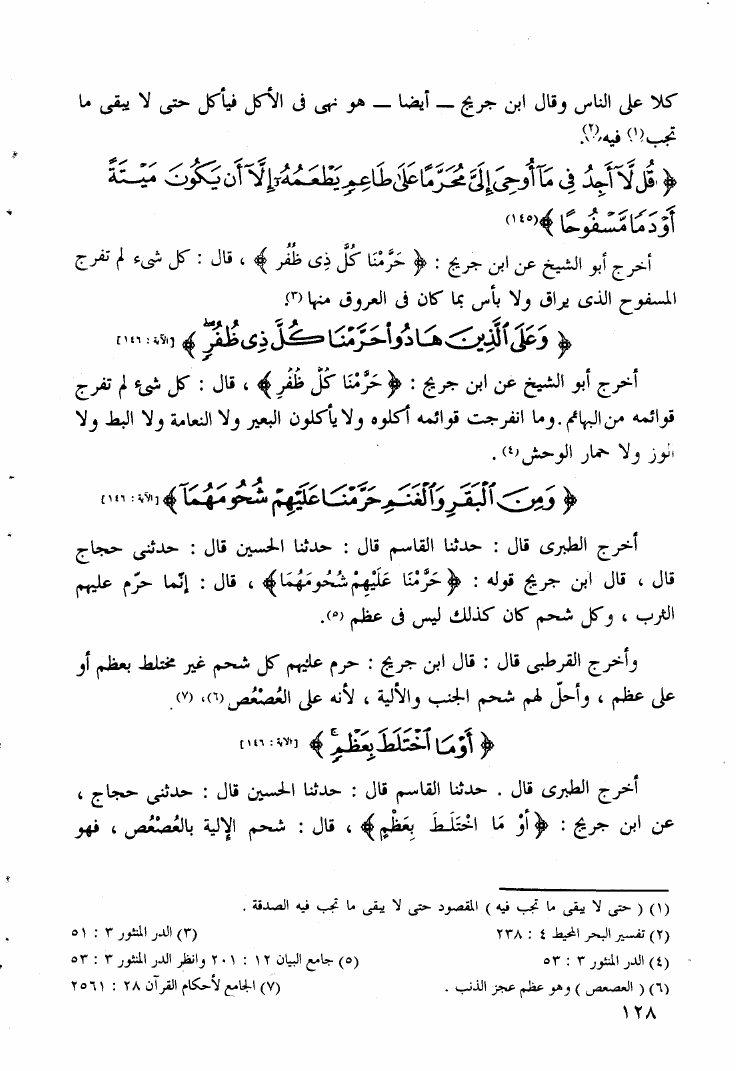 كلا على الناس وقال ابن جريج ــ أيضا ــ هو نهى فى الأكل فيأكل حتى لا يبقى ما
تجب(١) فيه(٢).
﴿ قُل لَّآ أَجِدُ فِى مَآ أُوحِىَ إِلَىَّ مُحَرَّمًا عَلَىٰ طَاعِمٍ يَطْعَمُهُۥٓ إِلَّآ أَن يَكُونَ مَيْتَةً
أَوْ دَمًا مَّسْفُوحًا ﴾(١٤٥)
أخرج أبو الشيخ عن ابن جريج : ﴿ حَرَّمْنَا كُلَّ ذِى ظُفُرٍ ﴾ ، قال : كل شىء لم تفرج
المسفوح الذى يراق ولا بأس بما كان فى العروق منها(٣).
﴿ وَعَلَى ٱلَّذِينَ هَادُوا۟ حَرَّمْنَا كُلَّ ذِى ظُفُرٍ ۖ ﴾ [الآية : ١٤٦]
أخرج أبو الشيخ عن ابن جريج : ﴿ حَرَّمْنَا كُلَّ ظُفُرٍ ﴾ ، قال : كل شىء لم تفرج
قوائمه من البهائم . وما انفرجت قوائمه أكلوه ولا يأكلون البعير ولا النعامة ولا البط ولا
الوز ولا حمار الوحش(٤) .
﴿ وَمِنَ ٱلْبَقَرِ وَٱلْغَنَمِ حَرَّمْنَا عَلَيْهِمْ شُحُومَهُمَآ ﴾ [الآية : ١٤٦]
أخرج الطبرى قال : حدثنا القاسم قال : حدثنا الحسين قال : حدثنى حجاج
قال ، قال ابن جريج قوله : ﴿ حَرَّمْنَا عَلَيْهِمْ شُحُومَهُمَا ﴾ ، قال : إنّما حرّم عليهم
الثرب ، وكل شحم كان كذلك ليس فى عظم (٥).
وأخرج القرطبى قال : قال ابن جريج : حرم عليهم كل شحم غير مختلط بعظم أو
على عظم ، وأحلّ لهم شحم الجنب والألية ، لأنه على العُصْعُص(٦)، (٧).
﴿ أَوْ مَا ٱخْتَلَطَ بِعَظْمٍ ۚ ﴾ [الآية : ١٤٦]
أخرج الطبرى قال . حدثنا القاسم قال : حدثنا الحسين قال : حدثنى حجاج ،
عن ابن جريج : ﴿ أَوْ مَا اخْتَلَطَ بِعَظْمٍ ﴾ ، قال : شحم الإلية بالعُصْعُص ، فهو
(١) ( حتى لا يبقى ما تجب فيه ) المقصود حتى لا يبقى ما تجب فيه الصدقة .
(٢) تفسير البحر المحيط ٤ : ٢٣٨ (٣) الدر المنثور ٣ : ٥١
(٤) الدر المنثور ٣ : ٥٣ (٥) جامع البيان ١٢ : ٢٠١ وانظر الدر المنثور ٣ : ٥٣
(٦) ( العصعص ) وهو عظم عجز الذنب . (٧) الجامع لأحكام القرآن ٢٨ : ٢٥٦١
١٢٨